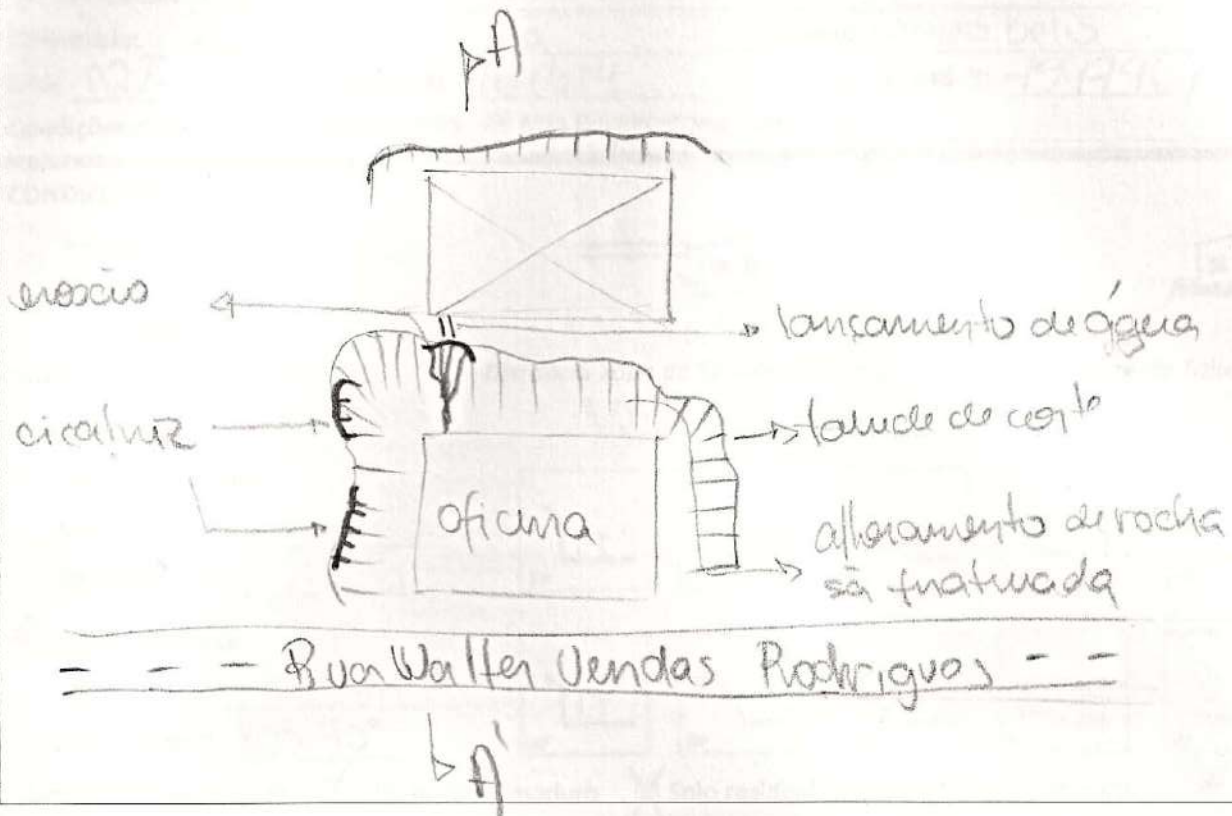 A
erosão
lançamento de água
cicatriz
talude de corte
oficina
afloramento de rocha
sã fraturada
Rua Walter Vendas Rodrigues
A'